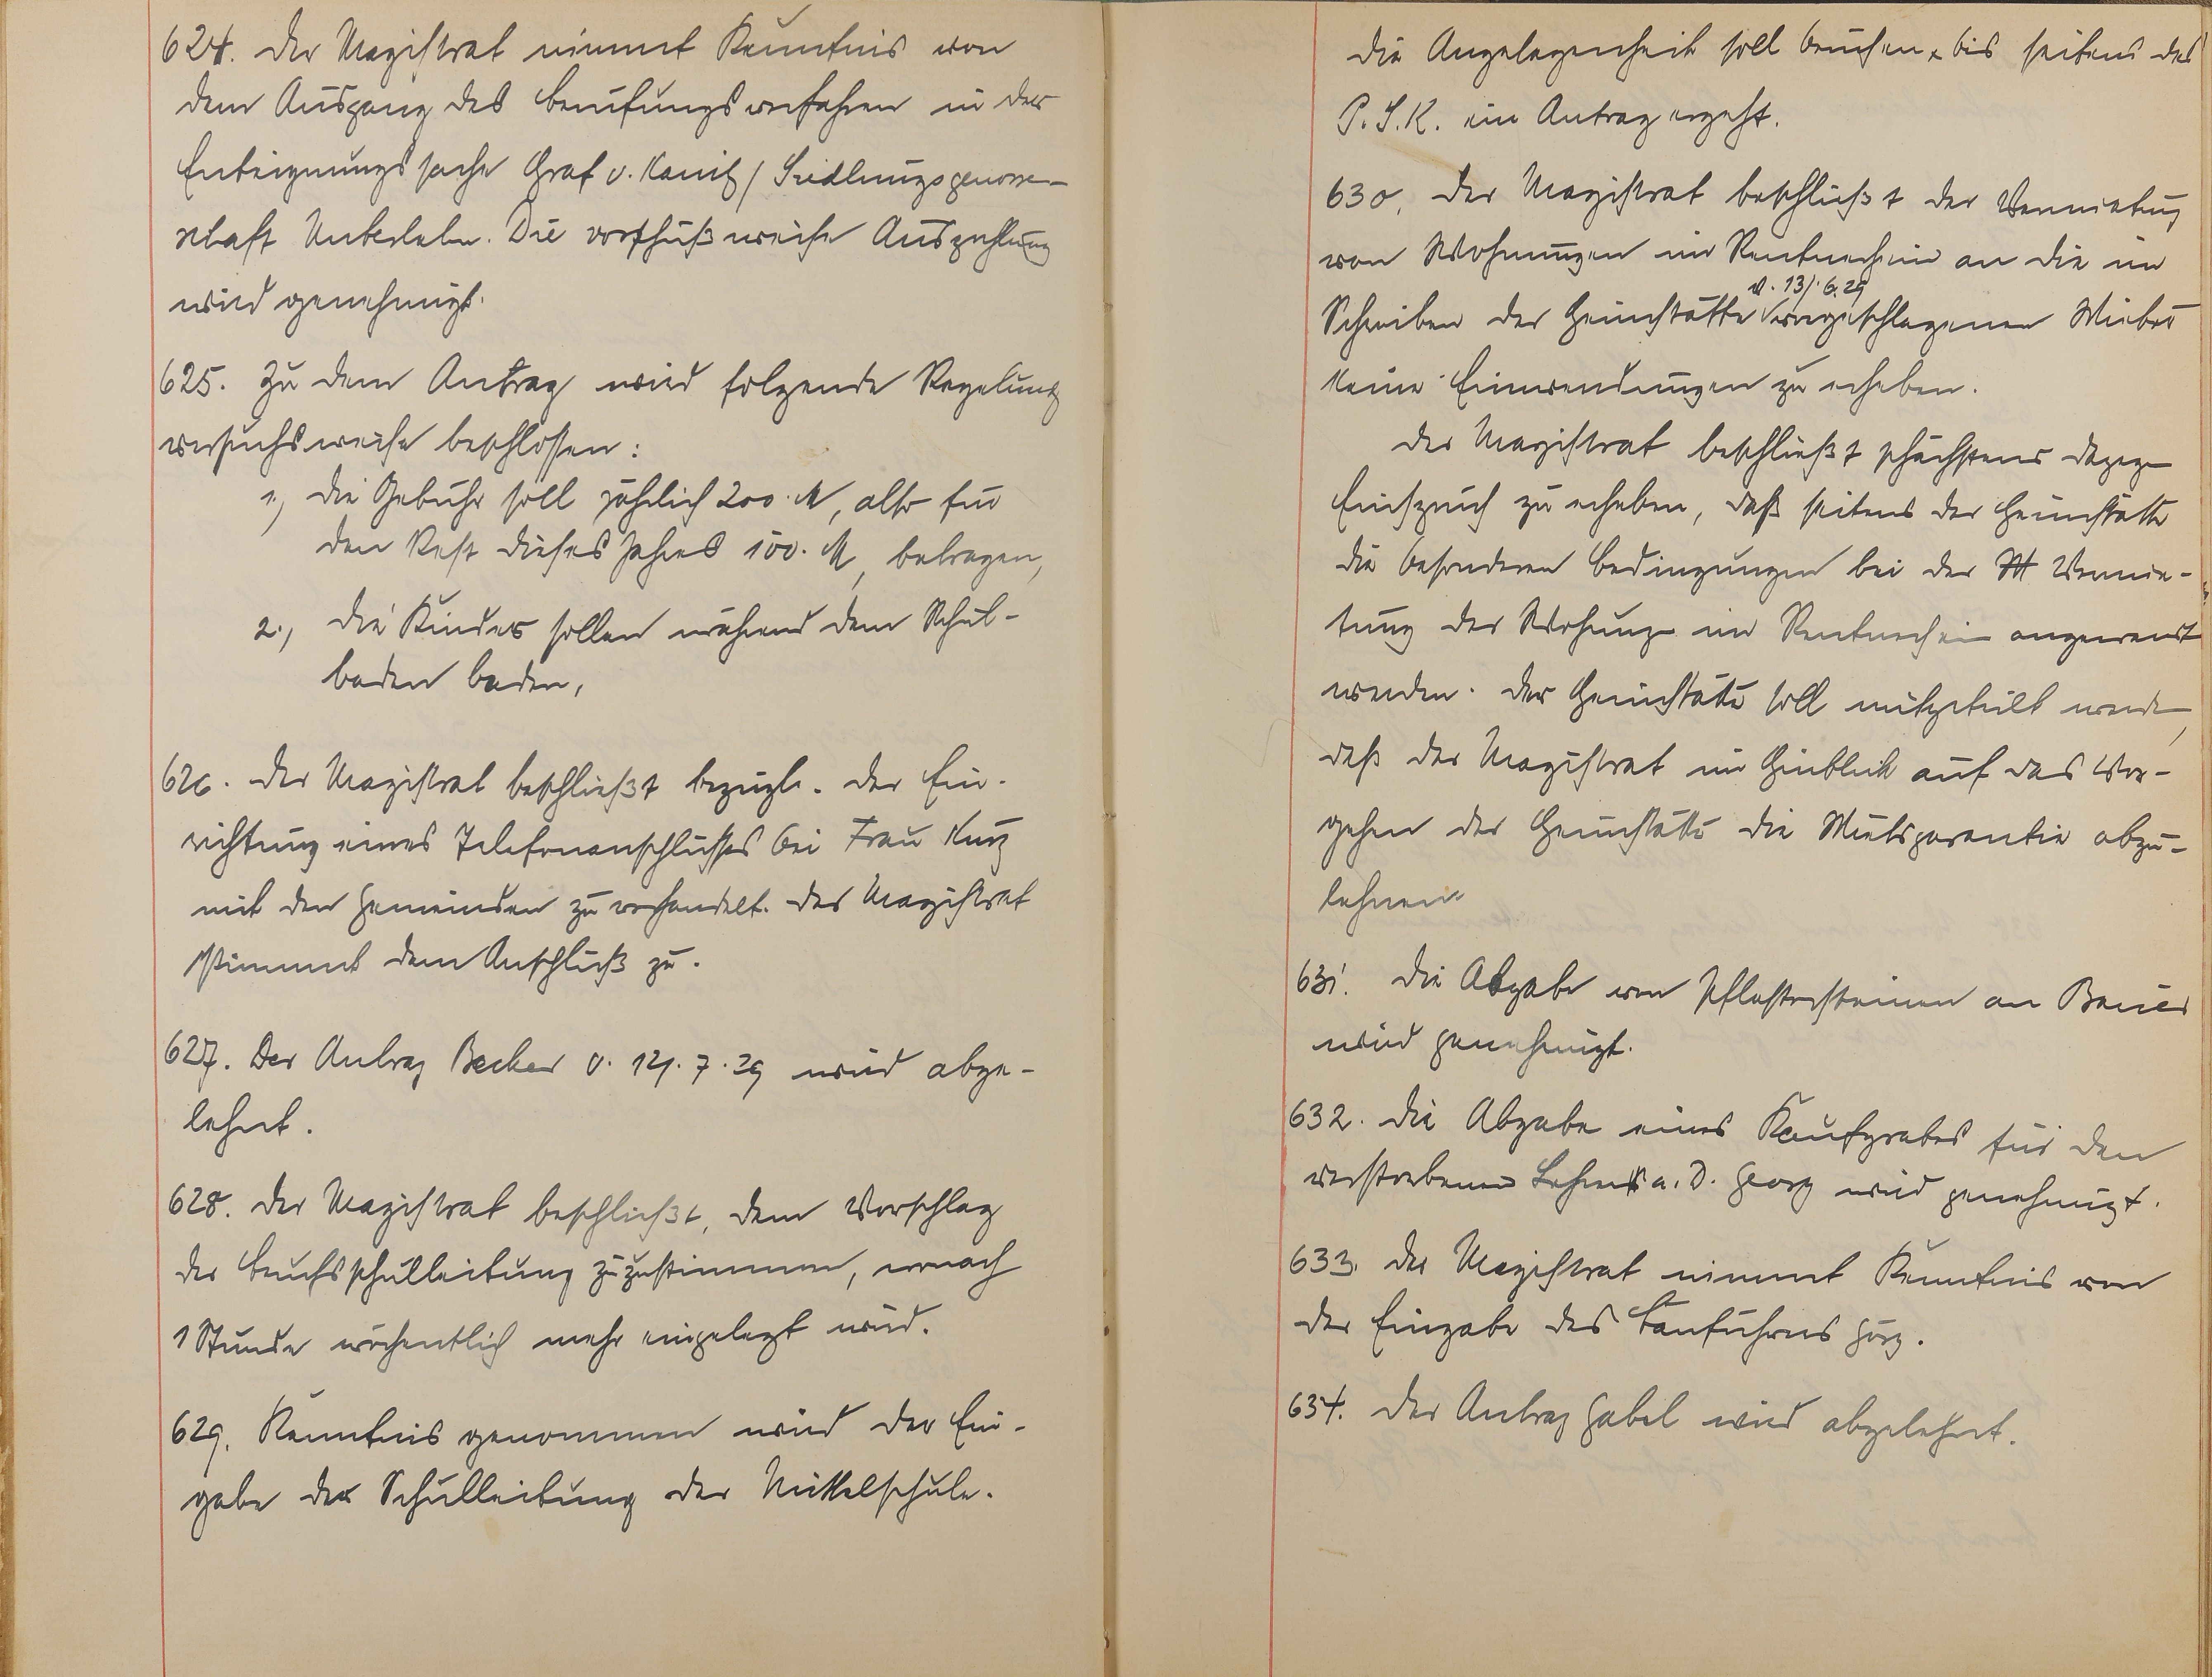 624. Der Magistrat nimmt Kenntnis von
dem Ausgang des Berufungsverfahren in der
Enteignungssache Graf v. Kanitz / Siedlungsgenossen-
schaft Unterlahn. Die vorschußweise Auszahlung
wird genehmigt.
625. Zu dem Antrag wird folgende Regelung
versuchsweise beschlossen:
1., die Gebühr soll jährlich 200. M, also für
den Rest dieses Jahres 100. M, betragen,
2., die Kinder sollen während dem Schul-
baden baden,
626. Der Magistrat beschließt bezügl. der Ein-
richtung eines Telefonanschlusses bei Frau Kurz
mit den Gemeinden zu verhandelt. Der Magistrat
stimmt dem Anschluß zu.
627. Der Antrag Becker v. 12/. 7. 29 wird abge-
lehnt.
628. Der Magistrat beschließt, dem Vorschlag
der Berufsschulleitung zuzustimmen, wonach
1 Stunde wöchentlich mehr eingelegt wird.
629. Kenntnis genommen wird der Ein-
gabe der Schulleitung der Mittelschule.
Die Angelegenheit soll beruhen, bis seitens des
P. S. K. ein Antrag ergeht.
630. Der Magistrat beschließt der Vermietung
von Wohnungen im Rentnerheim an die im
v. 13/. 6. 29
Schreiben der Heimstätte vorgeschlagenen Mieter
keine Einwendungen zu erheben.
Der Magistrat beschließt schärfstens dagegen
Einspruch zu erheben, daß seitens der Heimstätte
die besonderen Bedingungen bei der Vermie-
tung der Wohnung im Rentnerheim angewandt
werden. Der Heimstätte soll mitgeteilt werden,
daß der Magistrat im Hinblick auf das Vor-
gehen der Heimstätte die Mietsgarantie abzu-
lehnen
631. Die Abgabe von Pflastersteinen an Bauer
wird genehmigt.
632. Die Abgabe eines Kaufgrabes für den
verstorbenen Lehrer a. D. Georg wird genehmigt.
633. Der Magistrat nimmt Kenntnis von
der Eingabe des Bauführers Görg.
634. Der Antrag Gabel wird abgelehnt.